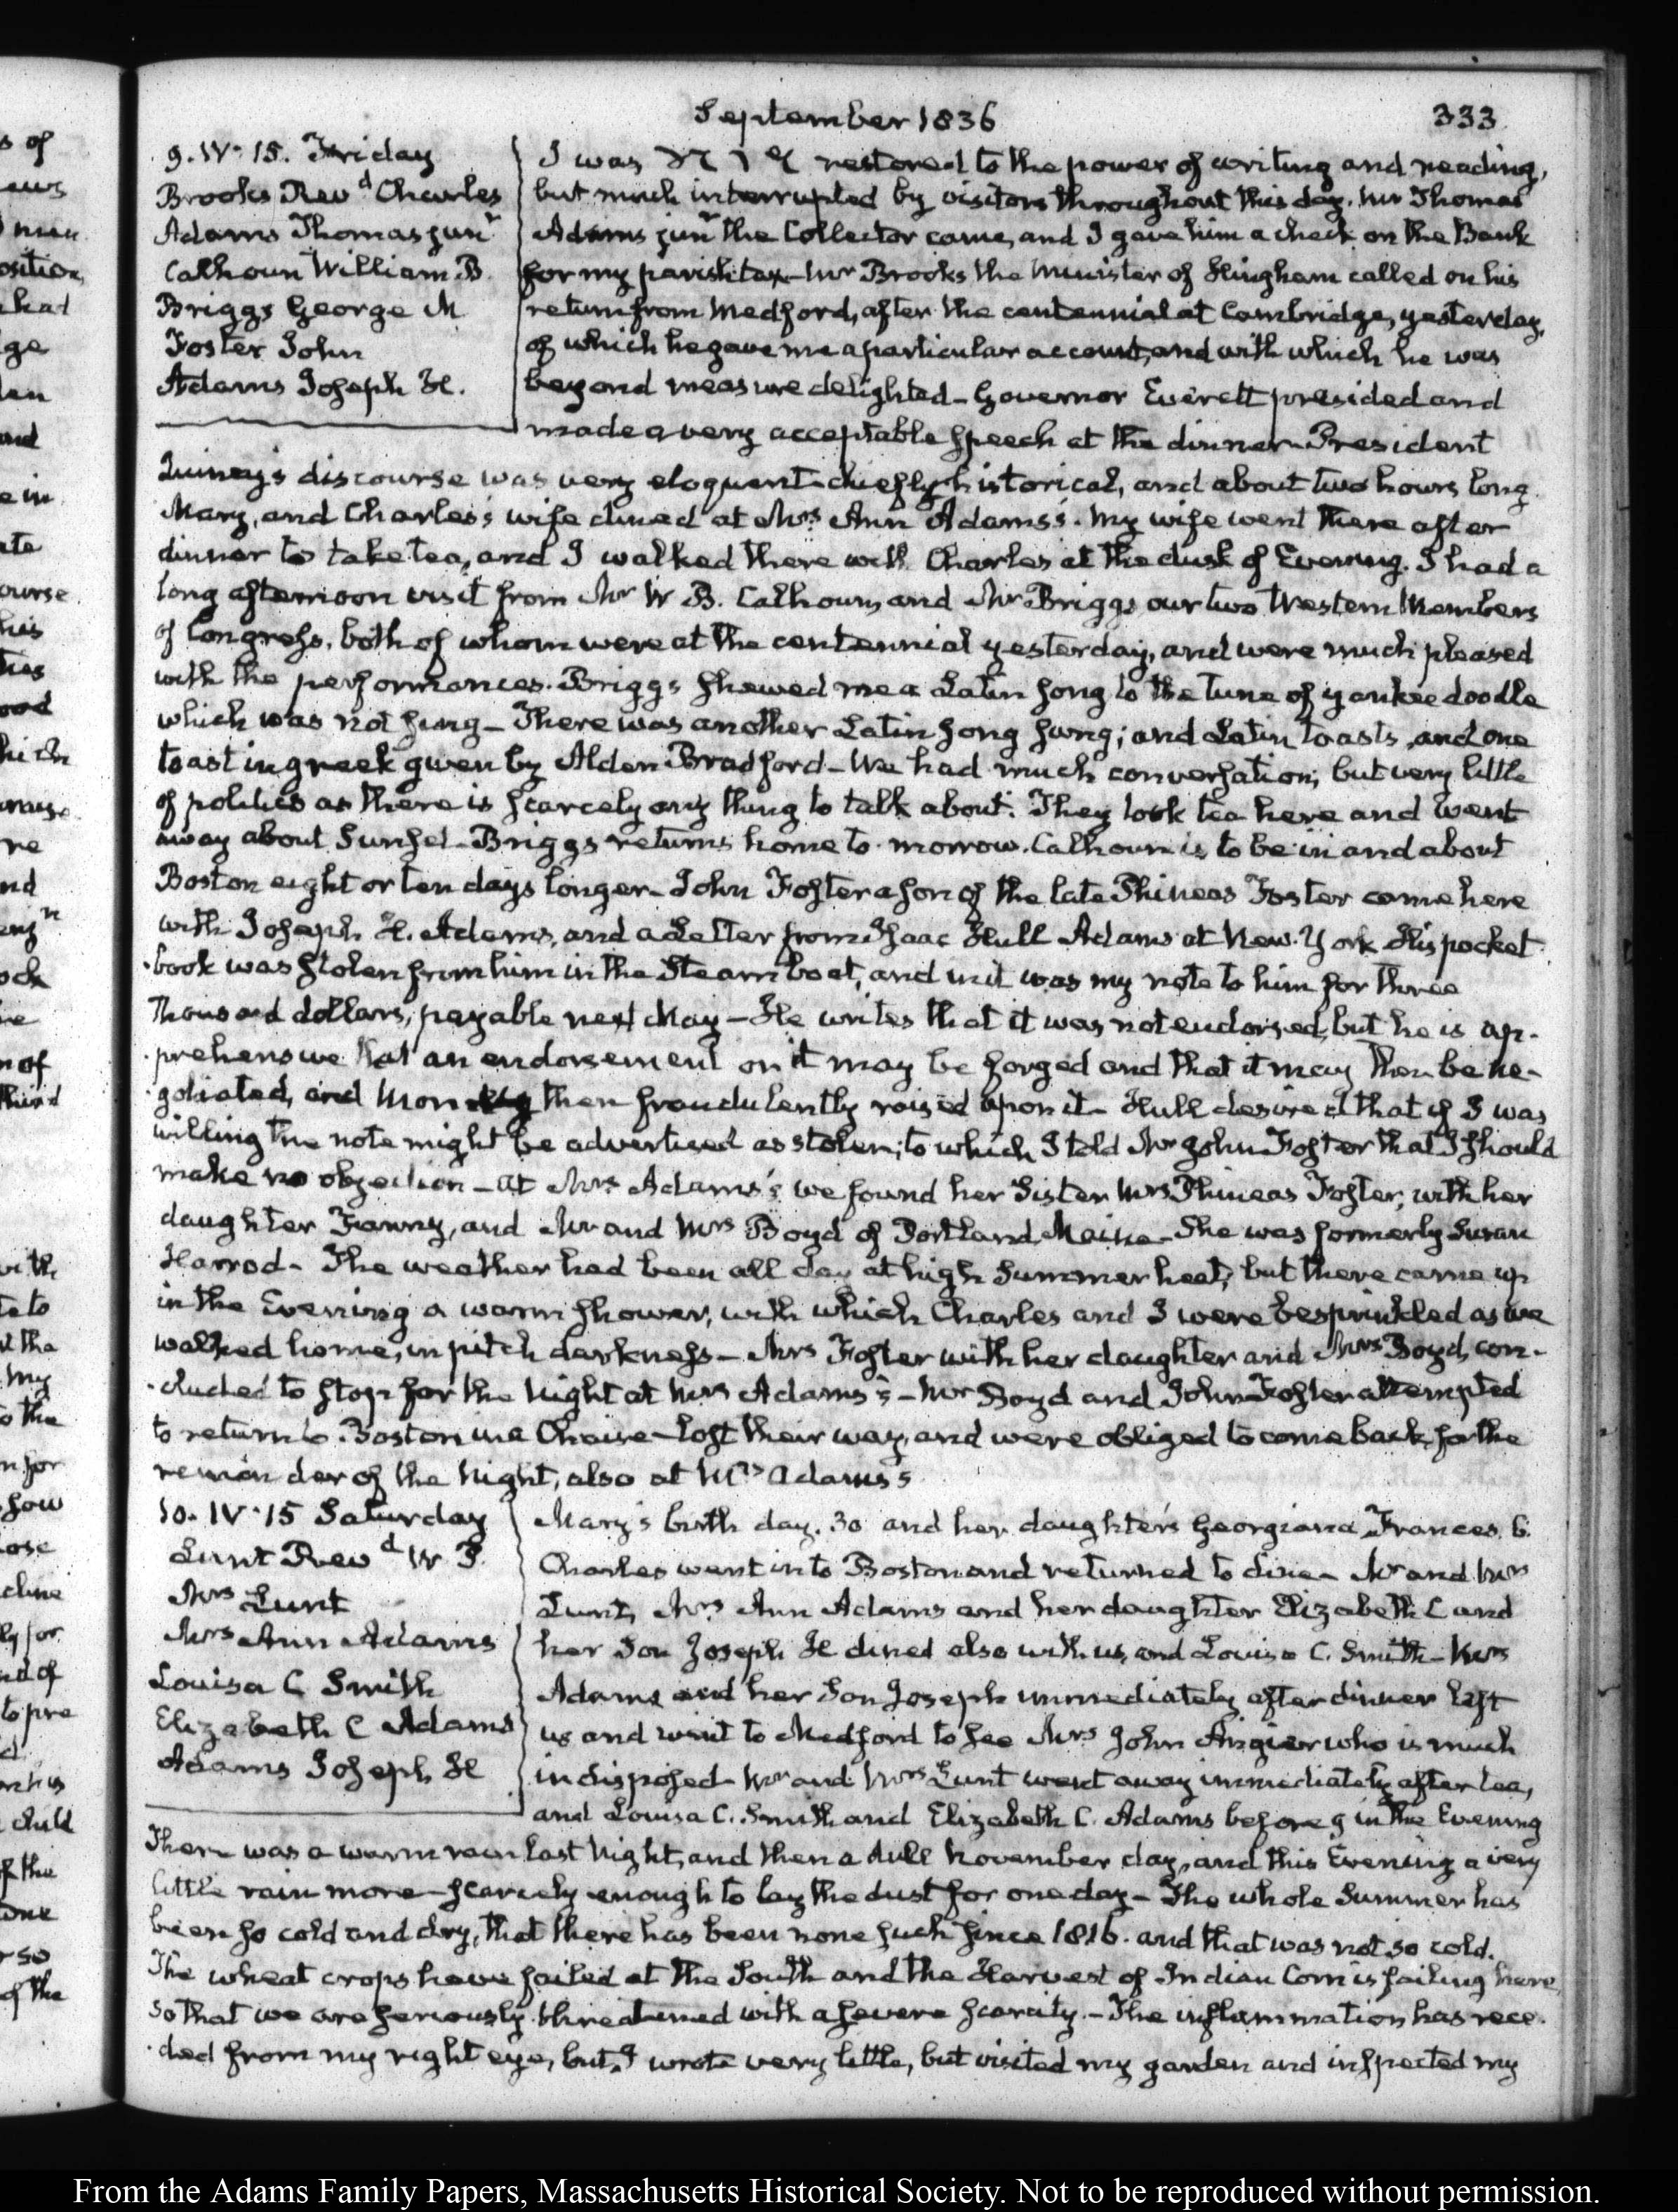 September 1836
333
9. IV. 15. Friday
Brooks Revd Charles
Adams Thomas junr
Calhoun William B.
Briggs George M
Foster John
Adams Joseph H.
I was restored to the power of writing and reading,
but much interrupted by visitors throughout this day. Mr Thomas
Adams junr the Collector came, and I gave him a check on the Bank
for my parish tax — Mr Brooks the Minister of Hingham called on his
return from Medford, after the centennial at Cambridge, yesterday,
of which he gave me a particular account, and with which he was
beyond measure delighted — Governor Everett presided and
made a very acceptable speech at the dinner — President
Quincy's discourse was very eloquent — chiefly historical, and about two hours long
Mary, and Charles's wife dined at Mrs Ann Adams's. My wife went there after
dinner to take tea, and I walked there with Charles at the dusk of Evening. I had a
long afternoon visit from Mr W. B. Calhoun, and Mr Briggs our two Western Members
of Congress, both of whom were at the centennial yesterday, and were much pleased
with the performances. Briggs shewed me a Latin song to the tune of yankee doodle
which was not sung — There was another Latin song sung; and Latin toasts, and one
toast in greek given by Alden Bradford — We had much conversation; but very little
of politics as there is scarcely any thing to talk about. They took tea here and went
away about Sunset — Briggs returns home to-morrow. Calhoun is to be in and about
Boston eight or ten days longer — John Foster a son of the late Phineas Foster came here
with Joseph H. Adams, and a Letter from Isaac Hull Adams at New-York His pocket
-book was stolen from him in the Steam boat, and in it was my note to him for three
Thousand dollars, payable next May — He writes that it was not endorsed, but he is ap-
-prehensive that an endorsement on it may be forged and that it may then be ne-
-gotiated, and Money then fraudulently raised upon it — Hull desired that if I was
willing the note might be advertised as stolen; to which I told Mr John Foster that I should
make no objection — at Mrs Adams's we found her Sister Mrs Phineas Foster, with her
daughter Fanny, and Mr and Mrs Boyd of Portland Maine — She was formerly Susan
Harrod — The weather had been all day at high Summer heat, but there came up
in the Evening a warm shower, with which Charles and I were besprinkled as we
walked home, in pitch darkness — Mrs Foster with her daughter and Mrs Boyd, con-
-cluded to stop for the Night at Mrs Adams's — Mr Boyd and John Foster attempted
to return to Boston in a Chaise — lost their way, and were obliged to come back for the
remainder of the Night, also at Mrs Adams's
10. IV. 15 Saturday
Lunt Revd W P.
Mrs Lunt
Mrs Ann Adams
Louisa C Smith
Elizabeth C Adams
Adams Joseph H
Mary's birth day. 30 and her daughter's Georgiana Frances. 6.
Charles went into Boston and returned to dine — Mr and Mrs
Lunt, Mrs Ann Adams and her daughter Elizabeth C and
her Son Joseph H dined also with us, and Louisa C. Smith — Mrs
Adams and her Son Joseph immediately after dinner left
us and went to Medford to see Mrs John Angier who is much
indisposed — Mr and Mrs Lunt went away immediately after tea,
and Louisa C. Smith and Elizabeth C. Adams before 9 in the Evening
There was a warm rain last Night, and then a dull November day, and this Evening a very
little rain more — scarcely enough to lay the dust for one day — The whole Summer has
been so cold and dry, that there has been none such since 1816. and that was not so cold.
The wheat crops have failed at the South and the Harvest of Indian Corn is failing here,
so that we are seriously threatened with a severe scarcity. — The inflammation has rece-
-ded from my right eye, but I wrote very little, but visited my garden and inspected my
From the Adams Family Papers, Massachusetts Historical Society. Not to be reproduced without permission.